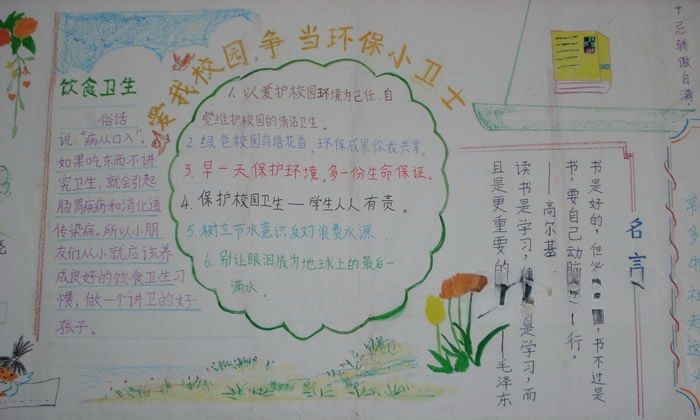 爱我校园，争当环保小卫士
饮食卫生
俗话
说：“病从口入”，
如果吃东西不讲
究卫生，就会引起
肠胃疾病和消化道
传染病。所以小朋
友们从小就应该养
成良好的饮食卫生习
惯，做一个讲卫的好
孩子。
1. 以爱护校园环境为己任，自
觉维护校园的清洁卫生。
2. 绿色校园鸟语花香，环保成果你我共享。
3. 早一天保护环境，多一份生命保证。
4. 保护校园卫生—学生人人有责。
5. 树立节水意识反对浪费水源
6. 别让眼泪成为地球上的最后一
滴水。
名言
书是好的，但必，书不过是
书，要自己动脑一行。
——高尔基
读书是学习，使是学习，而
且是更重要的
——毛泽东
十忌骄傲自满